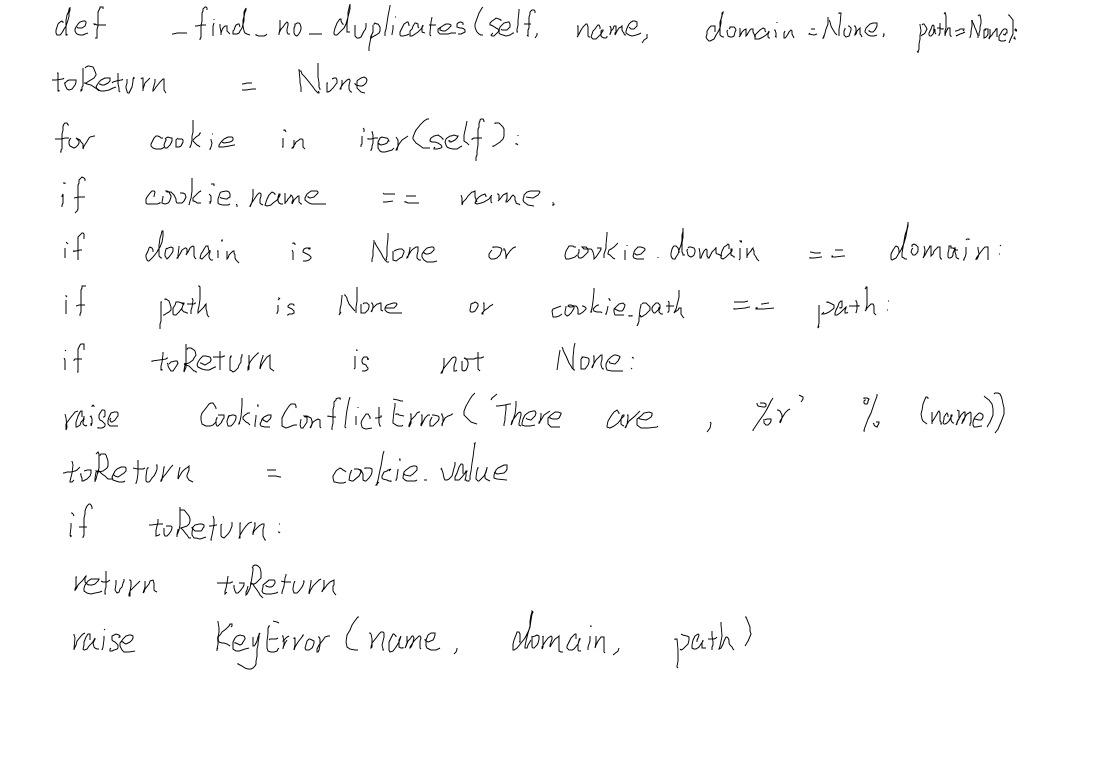 def _find_no_duplicates(self, name, domain=None, path=None):
toReturn = None
for cookie in iter(self):
if cookie.name == name.
if domain is None or cookie.domain == domain:
if path is None or cookie.path == path:
if toReturn is not None:
raise CookieConflictError('There are , %r' % (name))
toReturn = cookie.value
if toReturn:
return toReturn
raise KeyError(name, domain, path)